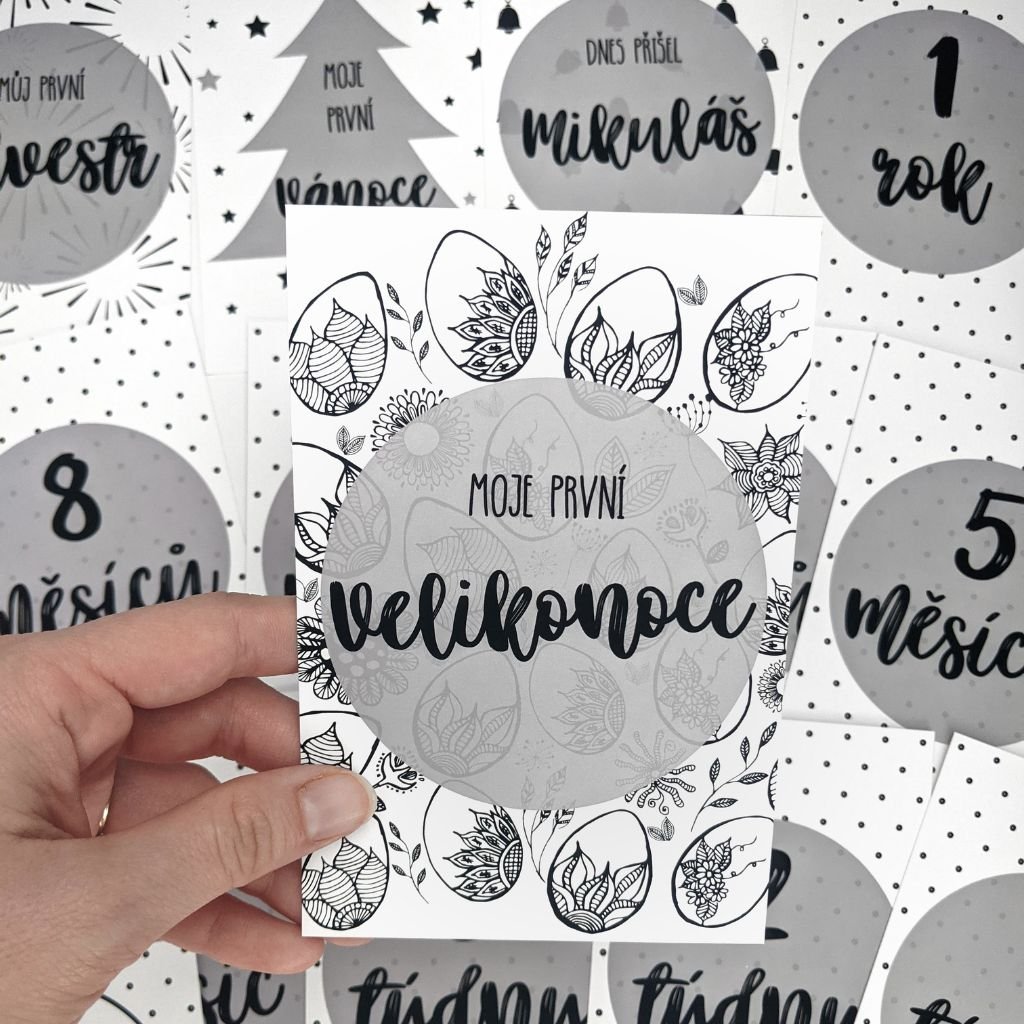 MŮJ PRVNÍ
MOJE
PRVNÍ
vánoce
DNES PŘIŠEL
mikuláš
1
rok
8
měsíců
MOJE PRVNÍ
velikonoce
5
měsíc
2
týdny
týdny